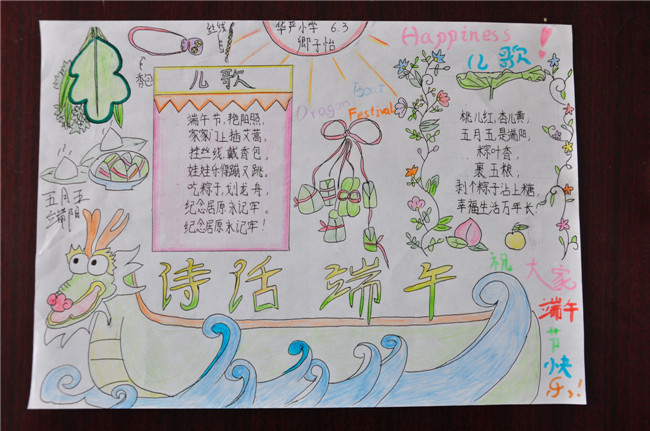 华严小学 6.3
鄉子怡
丝线
香包
Happiness
儿歌
儿歌
Dragon Boat
Festival
端午节,艳阳照,
家家门上插艾蒿,
挂丝线,戴香包,
娃娃乐得蹦又跳。
吃粽子,划龙舟,
纪念居原永记牢。
纪念居原永记牢!
桃儿红,杏儿黄,
五月五,是端阳,
粽叶香,
裹五粮,
剥个粽子沾上糖,
幸福生活万年长!
五月五
端阳
诗话端午
祝
大家
端午
节
快
乐!